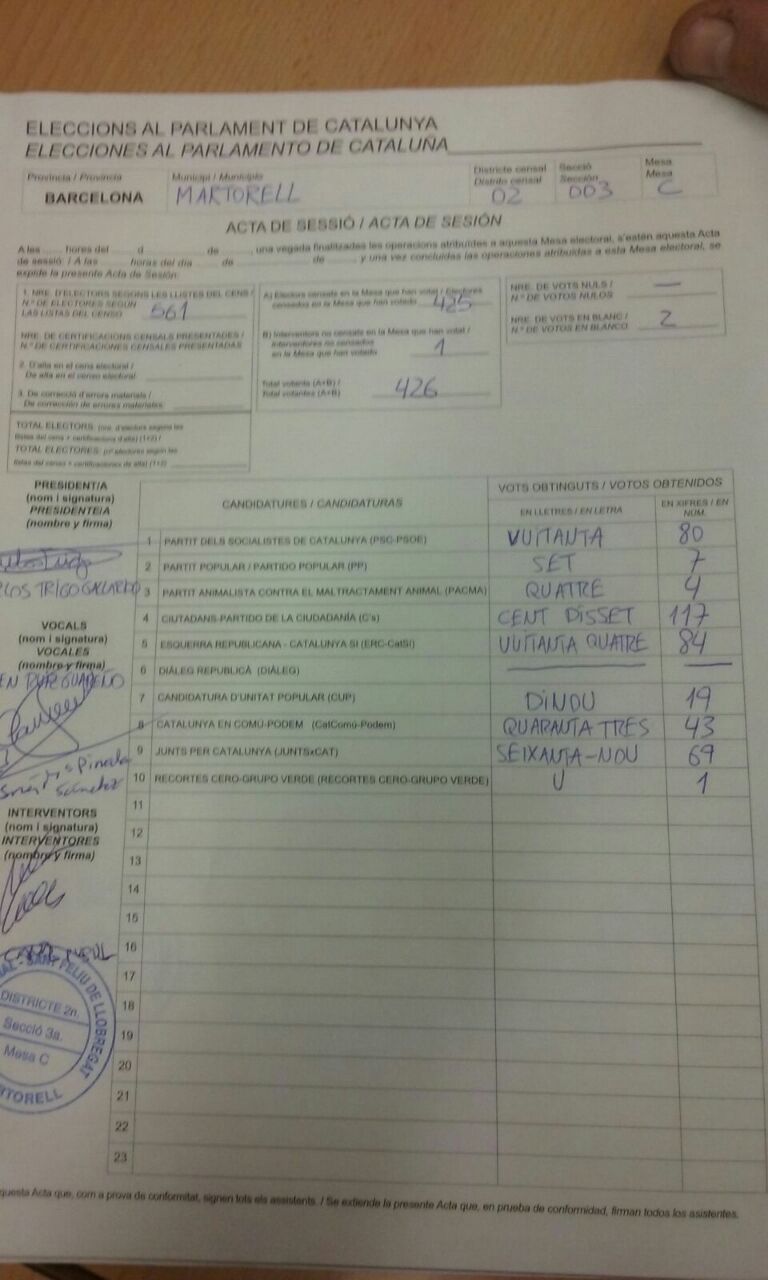 ELECCIONS AL PARLAMENT DE CATALUNYA
ELECCIONES AL PARLAMENTO DE CATALUÑA
Província / Provincia
Municipi / Municipio
Districte censal
Distrito censal
Secció
Sección
Mesa
Mesa
BARCELONA
MARTORELL
02
003
C
ACTA DE SESSIÓ / ACTA DE SESIÓN
A les hores del d de de , una vegada finalitzades les operacions atribuïdes a aquesta Mesa electoral, s'estén aquesta Acta
de sessió: / A las horas del día de de y una vez concluidas las operaciones atribuidas a esta Mesa electoral, se
expide la presente Acta de Sesión:
1. NRE. D'ELECTORS SEGONS LES LLISTES DEL CENS /
N.º DE ELECTORES SEGÚN
LAS LISTAS DEL CENSO 561
NRE. DE CERTIFICACIONS CENSALS PRESENTADES /
N.º DE CERTIFICACIONES CENSALES PRESENTADAS
2. D'alta en el cens electoral /
De alta en el censo electoral
3. De correcció d'errors materials /
De corrección de errores materiales
TOTAL ELECTORS: (nre. d'electors segons les
llistes del cens + certificacions d'alta) (1+2) /
TOTAL ELECTORES: (nº electores según las
listas del censo + certificaciones de alta) (1+2)
A) Electors censats en la Mesa que han votat / Electores
censados en la Mesa que han votado 425
B) Interventors no censats en la Mesa que han votat /
Interventores no censados
en la Mesa que han votado 1
Total votants (A+B) /
Total votantes (A+B) 426
NRE. DE VOTS NULS /
N.º DE VOTOS NULOS —
NRE. DE VOTS EN BLANC /
N.º DE VOTOS EN BLANCO 2
PRESIDENT/A
(nom i signatura)
PRESIDENTE/A
(nombre y firma)
TRIGO GALLARDO
VOCALS
(nom i signatura)
VOCALES
(nombre y firma)
Pineda
Sánchez
INTERVENTORS
(nom i signatura)
INTERVENTORES
(nombre y firma)
SANT FELIU DE LLOBREGAT
DISTRICTE 2n.
Secció 3a.
Mesa C
CANDIDATURES / CANDIDATURAS
VOTS OBTINGUTS / VOTOS OBTENIDOS
EN LLETRES / EN LETRA
EN XIFRES / EN NÚM.
1 PARTIT DELS SOCIALISTES DE CATALUNYA (PSC-PSOE) VUITANTA 80
2 PARTIT POPULAR / PARTIDO POPULAR (PP) SET 7
3 PARTIT ANIMALISTA CONTRA EL MALTRACTAMENT ANIMAL (PACMA) QUATRE 4
4 CIUTADANS-PARTIDO DE LA CIUDADANÍA (C's) CENT DISSET 117
5 ESQUERRA REPUBLICANA - CATALUNYA SÍ (ERC-CatSí) VUITANTA QUATRE 84
6 DIÀLEG REPUBLICÀ (DIÀLEG) — —
7 CANDIDATURA D'UNITAT POPULAR (CUP) DINOU 19
8 CATALUNYA EN COMÚ-PODEM (CatComú-Podem) QUARANTA TRES 43
9 JUNTS PER CATALUNYA (JUNTSxCAT) SEIXANTA-NOU 69
10 RECORTES CERO-GRUPO VERDE (RECORTES CERO-GRUPO VERDE) U 1
11
12
13
14
15
16
17
18
19
20
21
22
23
Acta que, com a prova de conformitat, signen tots els assistents. / Se extiende la presente Acta que, en prueba de conformidad, firman todos los asistentes.